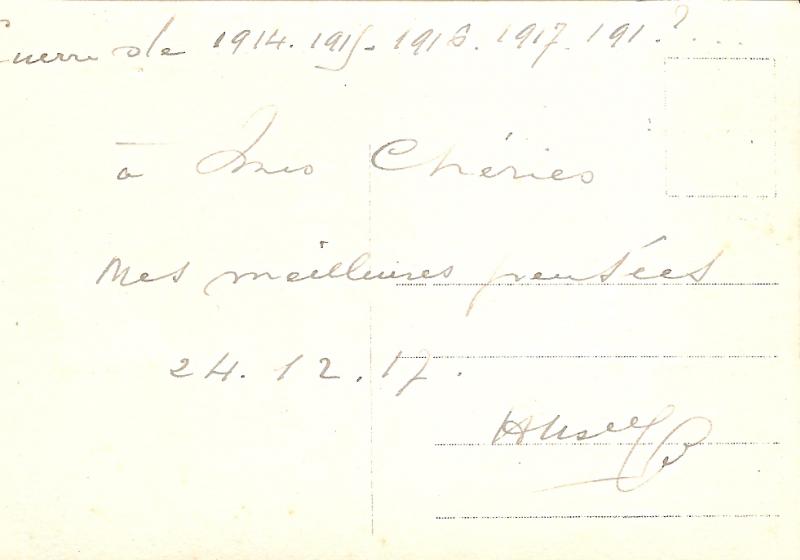 Guerre de 1914. 1915. 1916. 1917. 191.?...
à mes Chéries
Mes meilleures pensées
24.12.17.